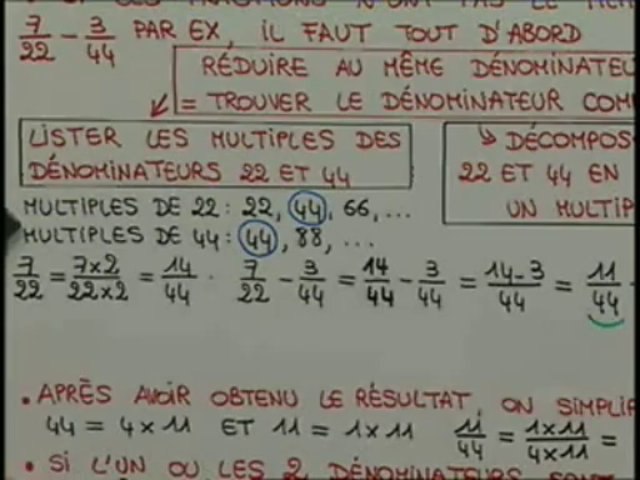 7/22 - 3/44 PAR EX, IL FAUT TOUT D'ABORD
RÉDUIRE AU MÊME
= TROUVER LE DÉNOMINATEUR
LISTER LES MULTIPLES DES
DÉNOMINATEURS 22 ET 44
22 ET 44 EN
UN
MULTIPLES DE 22 : 22, 44, 66, ...
MULTIPLES DE 44 : 44, 88, ...
7/22 = 7×2/22×2 = 14/44 . 7/22 - 3/44 = 14/44 - 3/44 = 14-3/44 = 11/44
• APRÈS AVOIR OBTENU LE RÉSULTAT, ON
44 = 4 × 11 ET 11 = 1 × 11 11/44 = 1×11/4×11 =
• SI L'UN OU LES 2 DÉNOMINATEURS